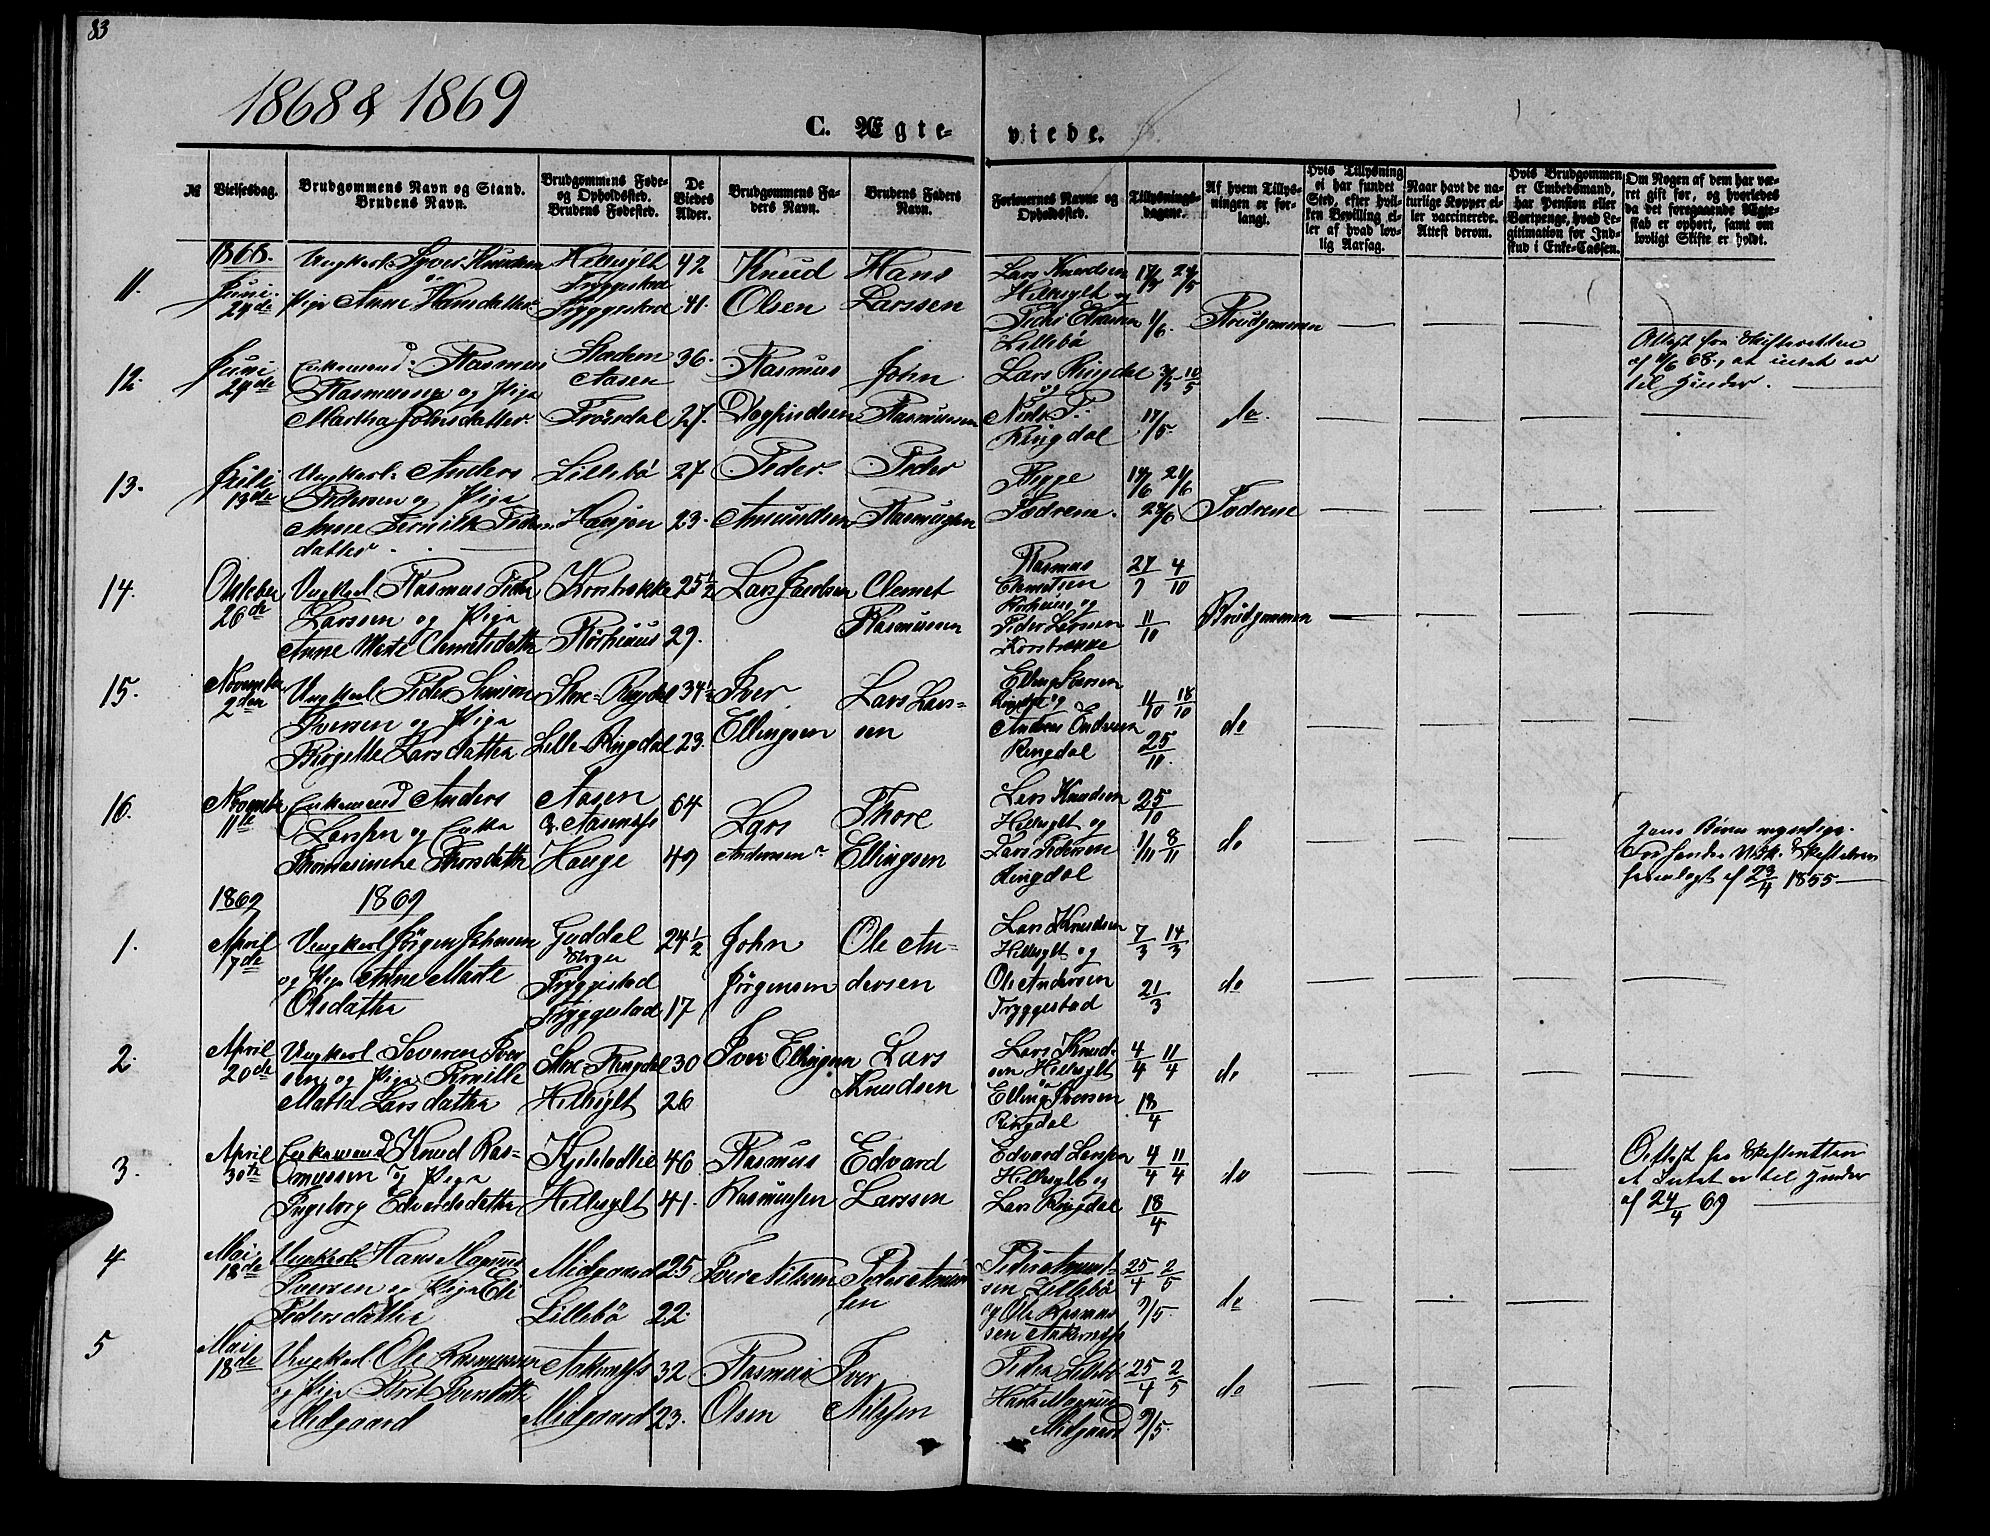 83
1868 & 1869
C. Ægte-
viede.
№
Vielsesdag.
Brudgommens Navn og Stand.
Brudens Navn.
Brudgommens Føde-
og Opholdssted.
Brudens Fødested.
De
Viedes
Alder.
Brudgommens Fa-
ders Navn.
Brudens Faders
Navn.
Forlovernes Navne og
Opholdssted.
Tillysnings-
dagene.
Af hvem Tillys-
ningen er for-
langt.
Hvis Tillysning
ei har fundet
Sted, efter hvil-
ken Bevilling el-
ler af hvad lov-
lig Aarsag.
Naar havt de na-
turlige Kopper el-
ler vaccinerede.
Attest derom.
Hvis Brudgommen
er Embedsmand,
har Pension eller
Vartpenge, hvad Le-
gitimation for Ind-
skud i Enke-Cassen.
Om Nogen af dem har væ-
ret gift før, og hvorledes
da det foregaaende Ægte-
skab er ophørt, samt om
lovligt Skifte er holdt.
1868.
11.
Juni
24de
Ungkarl Sjver Knudsen
Pige Anne Hansdatter
Hellesylt
Tryggestad
Tryggestad
42
41.
Knud
Olsen
Hans
Larssen
Lars Knudsen
Hellesylt og
Peder
Lillebø
17/5 24/5
1/6.
Brudgommen
12.
Juni
24de
Enkemand Rasmus
Rasmussen og Pige
Martha Johnsdatter.
Stadem
Aasen
Frøisdal
36.
27.
Rasmus
Dagfindsen
John
Rasmussen
Lars Ringdal
og
Niels P.
Ringdal
3/5 10/5
17/5.
do.
Attest fra Skifteretten
af /6 68, at intet er
til Hinder.
13.
Juli
13de
Ungkarl Anders
Pedersen og Pige
Anne Pernille Peders-
datter
Lillebø
Haugen
27.
23.
Peder
Amundsen
Peder
Rasmussen
Begge
Fædrene.
14/6 21/6
28/6
Fædrene
14.
October
26de
Ungkarl Rasmus Peder
Larssen og Pige
Anne Marte Clemetsdatter
Korsbrække
Rørhuus
25½
29.
Lars Jacobsen
Clemet
Rasmussen
Rasmus
Clemetsen
Rørhuus og
Peder Larssen
Korsbrække
27/9 4/10
11/10
Brudgommen
15.
November
2den
Ungkarl Peder Simon
Iversen og Pige
Birgitte Larsdatter
Store-Ringdal
Lille-Ringdal
34½
23.
Iver
Ellingsen
Lars Lars-
sen
Elling Iversen
Ringdal og
Andreas Endresen
Ringdal
11/10 18/10
25/10.
do
16.
November
11te
Enkemand Anders
Larssen og Enke
Thomasine Thoresdatter
Aasen
Hauge
64
49
Lars
Andersen
Thore
Ellingsen
Lars Knudsen
Hellesylt og
Lars Pedersen
Ringdal
25/10
1/11 8/11
do
hans Børn myndige.
forhendes Skiftebrev
fremlagt af 23/4 1855
1869
1869
1.
April
17de
Ungkarl Jørgen Johnsen
og Pige Anne Marte
Olsdatter
Gaddal
Tryggestad
Tryggestad
24½
17
John
Jørgensen
Ole An-
dersen
Lars Knudsen
Hellesylt og
Ole Andersen
Tryggestad
7/3 14/3
21/3
do
2
April
20de
Ungkarl Severen Iver
sen og Pige Pernille
Marta Larsdatter
Store-Ringdal
Hellesylt
30
26
Iver Ellingsen
Lars
Knudsen
Lars Knud-
sen Hellesylt
Elling Iversen
Ringdal
4/4 11/4
18/4
do
3.
April
30te
Enkemand Knud Ras-
mussen og Pige
Ingeborg Edvardsdatter
Kjelstadlie
Hellesylt
46
41.
Rasmus
Rasmussen
Edvard
Larssen
Edvard Larssen
Hellesylt og
Lars Ringdal
4/4 11/4
18/4
do
Attest fra Skifteretten
at Intet er til Hinder
af 24/4 69
4
Mai
18de
Ungkarl Hans Magnus
Iversen og Pige Eli
Pedersdatter
Midgaard
Lillebø
25
22.
Iver Nilssen
Peder Amund
sen
Peder Amund-
sen Lillebø
og Ole Rasmus
sen Aakernæs
25/4 2/5
9/5.
do
5
Mai
18de
Ungkarl Ole Rasmussen
og Pige Berit Iversdatter
Midgaard
Aakernæs
Midgaard
32
23.
Rasmus
Olsen
Iver
Nilssen
Peder Lillebø
Hans Magnus
Midgaard
25/4 2/5
9/5.
do